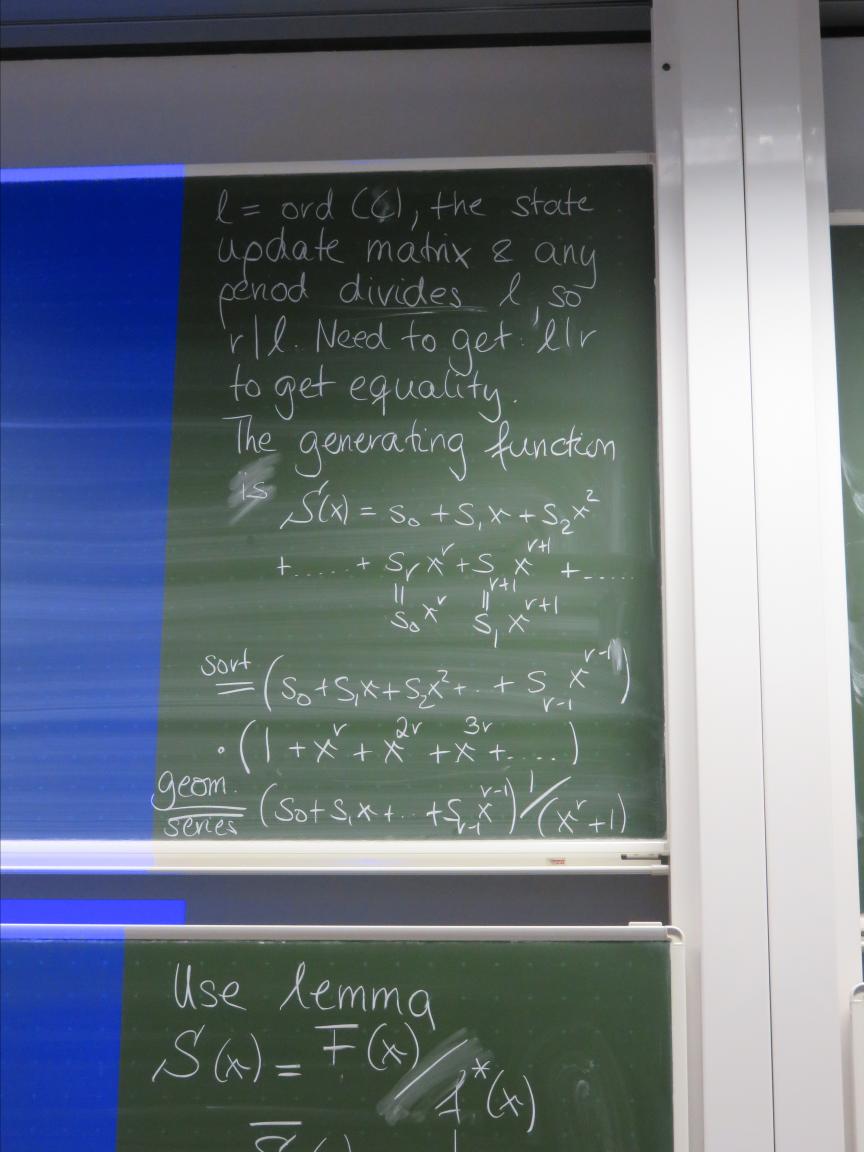 l = ord (C), the state
update matrix & any
period divides l, so
r|l. Need to get: l|r
to get equality.
The generating function
is S(x) = s₀ + s₁x + s₂x²
+ ...... + s_r x^r + s_{r+1} x^{r+1} + ......
|| ||
s₀x^r s₁x^{r+1}
sort
= (s₀+s₁x+s₂x²+..+ s_{r-1} x^{r-1})
· (1 + x^r + x^{2r} + x^{3r} + .....)
geom.
= (s₀+s₁x+...+s_{r-1}x^{r-1}) 1/(x^r+1)
series
Use lemma
S(x) = F(x) / f*(x)